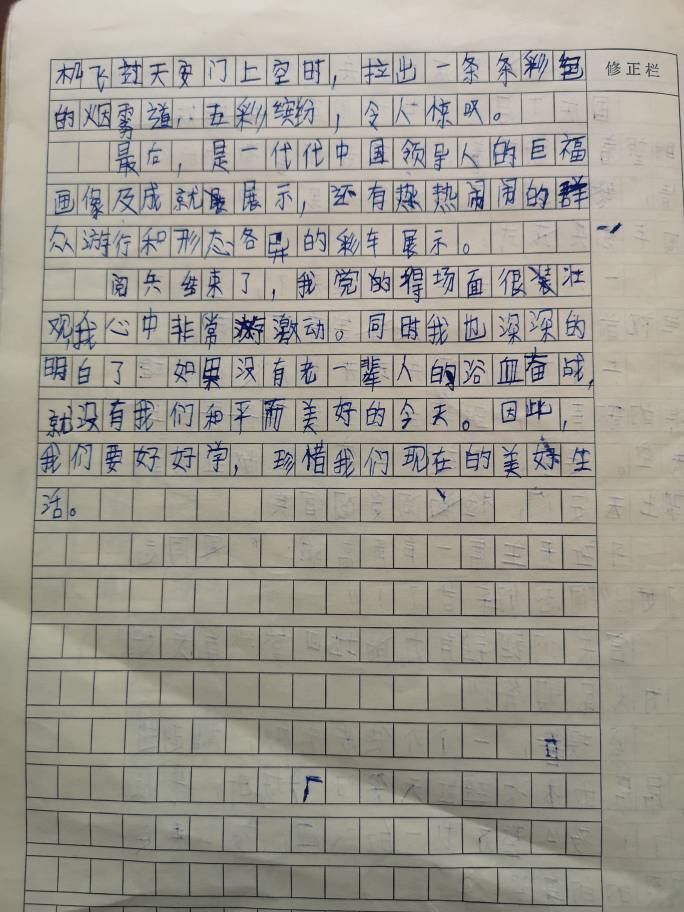 机飞过天安门上空时，拉出一条条彩色
修正栏
的烟雾道，五彩缤纷，令人惊叹。
最后，是一代代中国领导人的巨福
画像及成就展示，还有热热闹闹的群
众游行和形态各异的彩车展示。
阅兵结束了，我觉的得场面很装壮
观我心中非常激动。同时我也深深的
明白了 如果没有老一辈人的浴血奋战，
就没有我们和平而美好的今天。因此，
我们要好好学，珍惜我们现在的美好生
活。